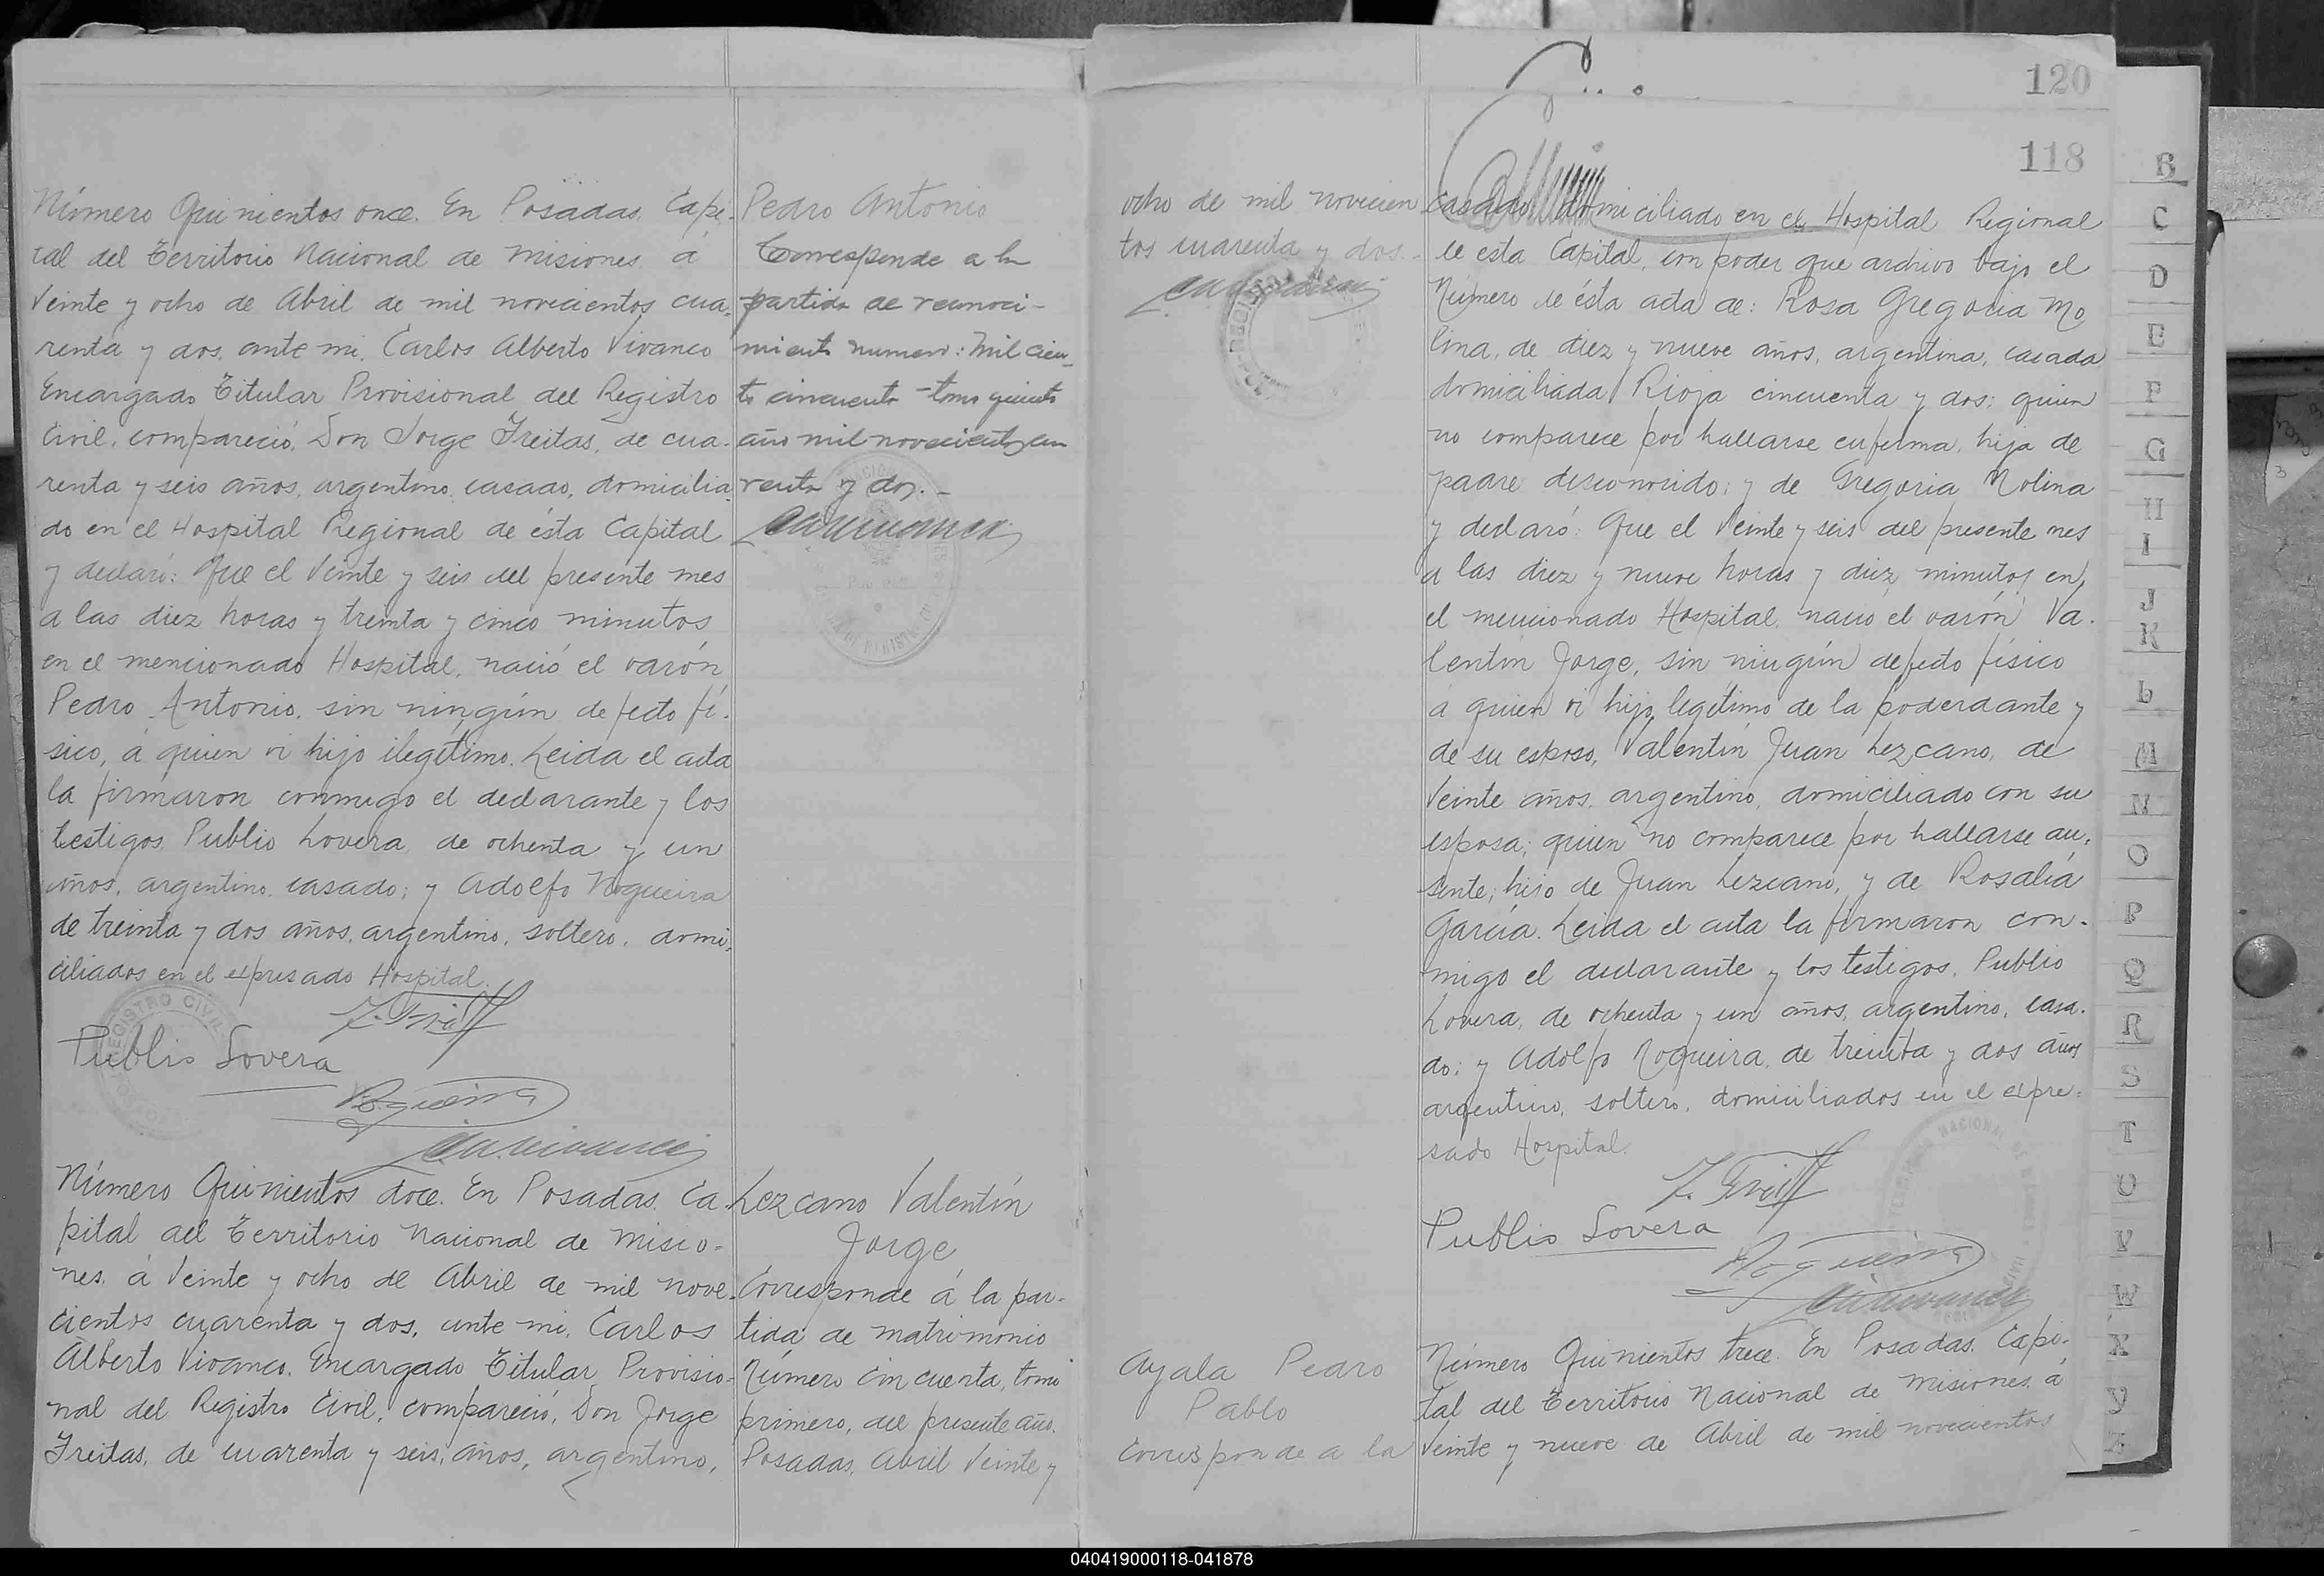 Número Quinientos once. En Posadas. Capi-
tal del Territorio Nacional de Misiones, á
Veinte y ocho de Abril de mil novecientos cua-
renta y dos, ante mi, Carlos Alberto Vivanco
Encargado Titular Provisional del Registro
Civil, compareció, Don Jorge Freitas, de cua-
renta y seis años, argentino, casado, domicilia-
do en el Hospital Regional de ésta Capital
y declaró: Que el Veinte y seis del presente mes
a las diez horas y treinta y cinco minutos
en el mencionado Hospital, nació el varón
Pedro Antonio, sin ningún defecto fí-
sico, á quien vi hijo ilegítimo. Leida el acta
la firmaron conmigo el declarante y los
testigos, Publio Lovera, de ochenta y un
años, argentino, casado; y Adolfo Nogueira
de treinta y dos años, argentino, soltero, domi-
ciliados en el expresado Hospital.
Publio Lovera
Nogueira
Pedro Antonio
Corresponde a la
partida de reconoci-
miento numero: Mil cien-
to cincuenta - tomo quinto
año mil novecientos cua
renta y dos.-
Número Quinientos doce. En Posadas. Ca-
pital del Territorio Nacional de Misio-
nes, á Veinte y ocho de Abril de mil nove-
cientos cuarenta y dos, ante mi, Carlos
Alberto Vivanco, Encargado Titular Provisio-
nal del Registro Civil, compareció, Don Jorge
Freitas, de cuarenta y seis, años, argentino,
Lezcano Valentín
Jorge
Corresponde á la par-
tida de matrimonio
Número Cincuenta, tomo
primero, del presente año.
Posadas, Abril Veinte y
120
118
ocho de mil novecien
tos cuarenta y dos.-
casado, domiciliado en el Hospital Regional
de esta Capital, con poder que archivo bajo el
Número de ésta acta de: Rosa Gregoria Mo
lina, de diez y nueve años, argentina, casada
domiciliada Rioja cincuenta y dos; quien
no comparece por hallarse enferma, hija de
padre desconocido; y de Gregoria Molina
y declaró: Que el Veinte y seis del presente mes
a las diez y nueve horas y diez minutos en
el mencionado Hospital, nació el varón Va-
lentín Jorge, sin ningún defecto físico
a quien vi hijo legítimo de la poderdante y
de su esposo, Valentín Juan Lezcano, de
Veinte años, argentino, domiciliado con su
esposa; quien no comparece por hallarse au-
sente; hijo de Juan Lezcano, y de Rosalía
García. Leida el acta la firmaron con-
migo el declarante y los testigos, Publio
Lovera, de ochenta y un años, argentino, casa-
do; y Adolfo Nogueira, de treinta y dos años
argentino, soltero, domiciliados en el expre-
sado Hospital.
Publio Lovera
Nogueira
Ayala Pedro
Pablo
Corresponde a la
Número Quinientos trece. En Posadas. Capi-
tal del Territorio Nacional de Misiones, á
Veinte y nueve de Abril de mil novecientos
B
C
D
E
F
G
H
I
J
K
L
M
N
O
P
Q
R
S
T
U
V
W
X
Y
Z
040419000118-041878